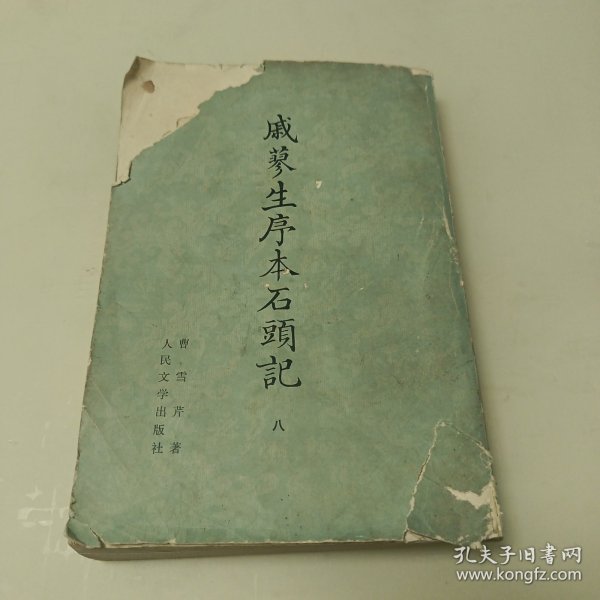 戚蓼生序本石頭記
八
曹雪芹著
人民文学出版社
孔夫子旧书网
www.kongfz.com